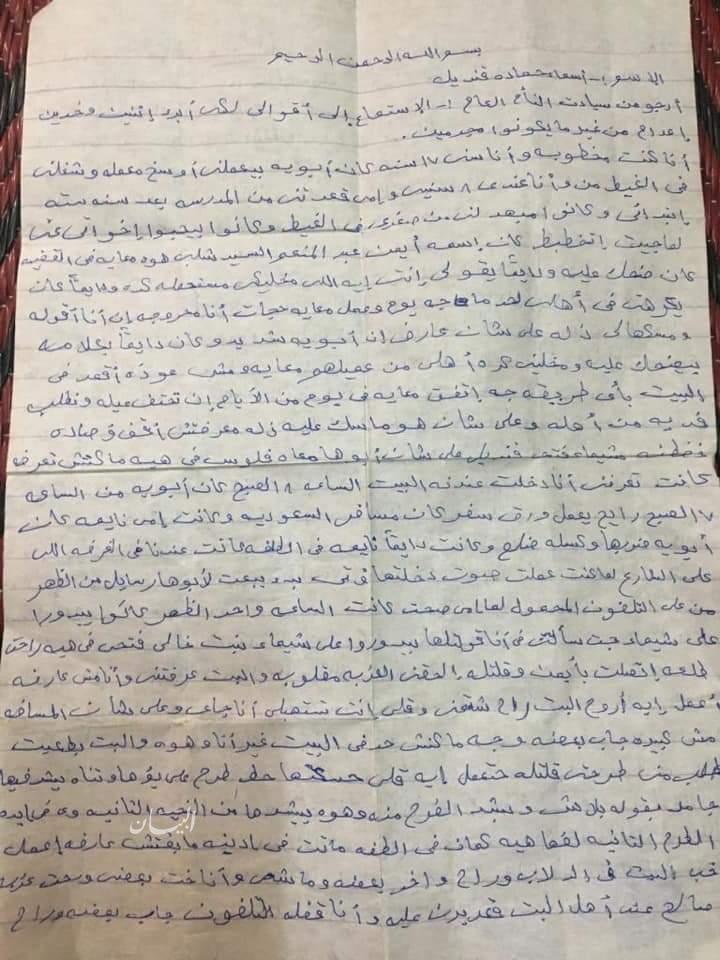 بسم الله الرحمن الرحيم
الاسم /- أسماء حماده قنديل
أرجو من سيادت النأب العام /- الاستماع إلى أقوالى لكى أبرء إتنين وخدين
إعدام من غير ما يكونوا مجرمين.
أنا كنت مخطوبه وأنا سنى ١٧ سنه كان أبويه بيعملنى أوسخ معمله وشغلنى
فى الغيط من وأنا عندى ٨ سنين وإمى قعدتنى من المدرسه بعد سنه سته
إبتدائى وكانو مبهدلنى من صغرى فى الغيط وكانوا بيحبوا إخواتى عنى
لما جيت إتخطبط كان إسمه أيمن عبد المنعم السيد شلب هوه معايه فى القضيه
كان ضحك عليه ودايماً يقولى إنت إيه اللى مخليكى مستحمله كده ودايماً كان
يكرهنى فى أهلى لحد ما جه يوم وعمل معايه حجات أنا محروجه إن أنا أقوله
ومسكهالى ذله على شان عارف إن أبويه شديد وكان دايماً بكلامه
بيضحك عليه ومخلينى كره أهلى من عميلهم معايه ومش عوذه أقعد فى
البيت بأى طريقه جه إتفق معايه فى يوم من الأيام إن تخطف عيله ونطلب
فديه من أهله وعلى شان هو ماسك عليه ذله معرفتش أقف قصاده
خطفنه شيماء فتحى قنديل على شان أبوها معاه فلوس فى هيه ماكنتش تعرفه
كانت تعرفنى أنا دخلت عندنه البيت الساعه ٨ الصبح كان أبويه من الساعه
٧ الصبح رايح يعمل ورق سفر كان مسافر السعوديه وكانت إمى نايمه كان
أبويه ضربها وكسله ضلع وكانت دايماً نايمه فى الطفه كانت عندنا فى الغرفه اللى
على الشارع لما كنت عملت صوت دخلتها أوضتى بدء يبعت لأبوها رسايل من الظهر
من على التلفون المحمول لما إمى صحت كانت الساعه واحد الظهر كانوا بيدورا
على شيماء جت سألتنى فى أنا قولتلها بيدوروا على شيماء بنت خالى فتحى فى هيه راحت
طلعه إتصلت بأيمن وقلتله إلحقنى العزبه مقلوبه والبت عرفتنى وأنا مش عارفه
أعمل إيه أروح البت راح شتمنى وقلى إنت تستهبلى أنا جاى وعلى شان المسافه
مش كبيره جاب بعضه وجه ماكنش حد فى البيت غير أنا وهوه والبت بطعيت
طلب منى طرحتى قلتله حتعمل إيه قلى حسكتها حط طرح على بؤها وتناه يشدفيها
جامد بقوله بلاش وبشد الطرح منه وهوه بيشدها من النحيه التانيه وى فى ايده
الطرح التانيه لفها هيه كمان فى الطفه ماتت فى ادينه مابقتش عارفه إعمل
خب البت فى الدلاب وراح واخد بعضه وماشى وأنا خت بعضى ورحت عزبة
صالح عند أهل البت قعديدن عليه وأنا قفله التلفون جاب بعضه وراح
البيان